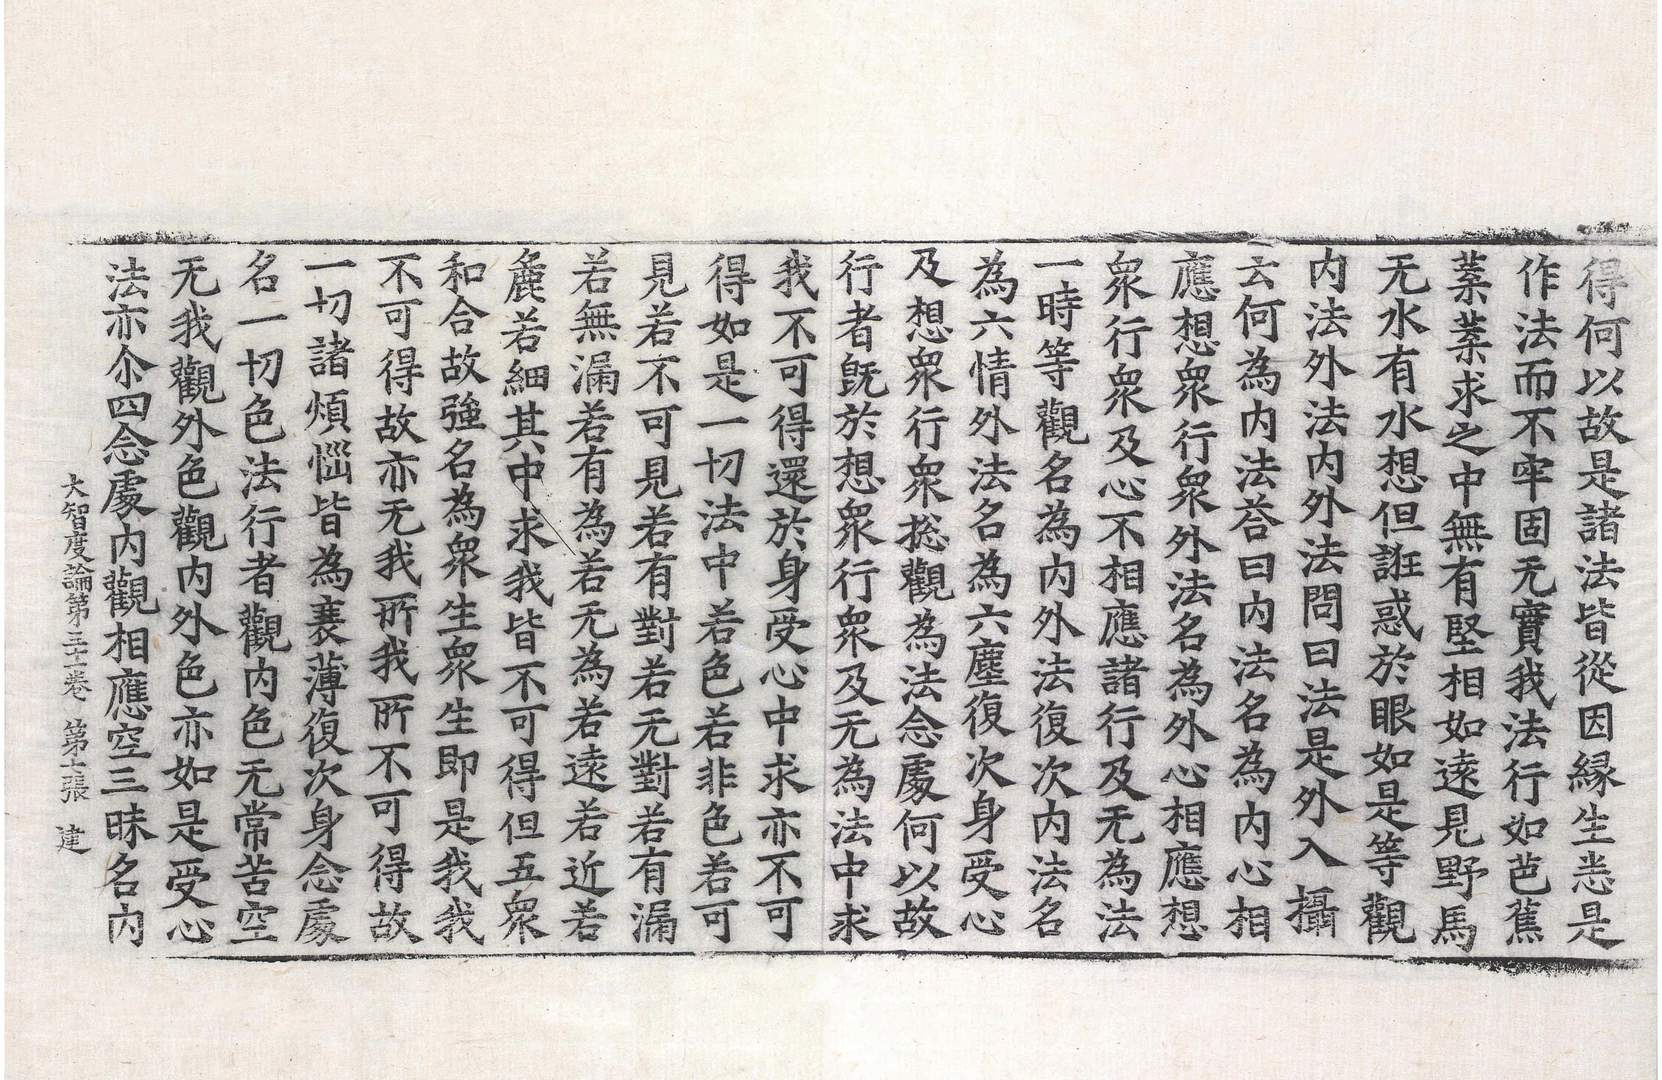 得何以故是諸法皆從因緣生恙是
作法而不牢固无實我法行如芭蕉
葉葉求之中無有堅相如遠見野馬
无水有水想但誑惑於眼如是等觀
内法外法内外法問曰法是外入攝
云何為内法荅曰内法名為内心相
應想衆行衆外法名為外心相應想
衆行衆及心不相應諸行及无為法
一時等觀名為内外法復次内法名
為六情外法名為六塵復次身受心
及想衆行衆捴觀為法念處何以故
行者旣於想衆行衆及无為法中求
我不可得還於身受心中求亦不可
得如是一切法中若色若非色若可
見若不可見若有對若无對若有漏
若無漏若有為若无為若遠若近若
麁若細其中求我皆不可得但五衆
和合故強名為衆生衆生即是我我
不可得故亦无我所我所不可得故
一切諸煩惱皆為衰薄復次身念處
名一切色法行者觀内色无常苦空
无我觀外色觀内外色亦如是受心
法亦尒四念處内觀相應空三昧名内
大智度論第三十一卷 第十張 建